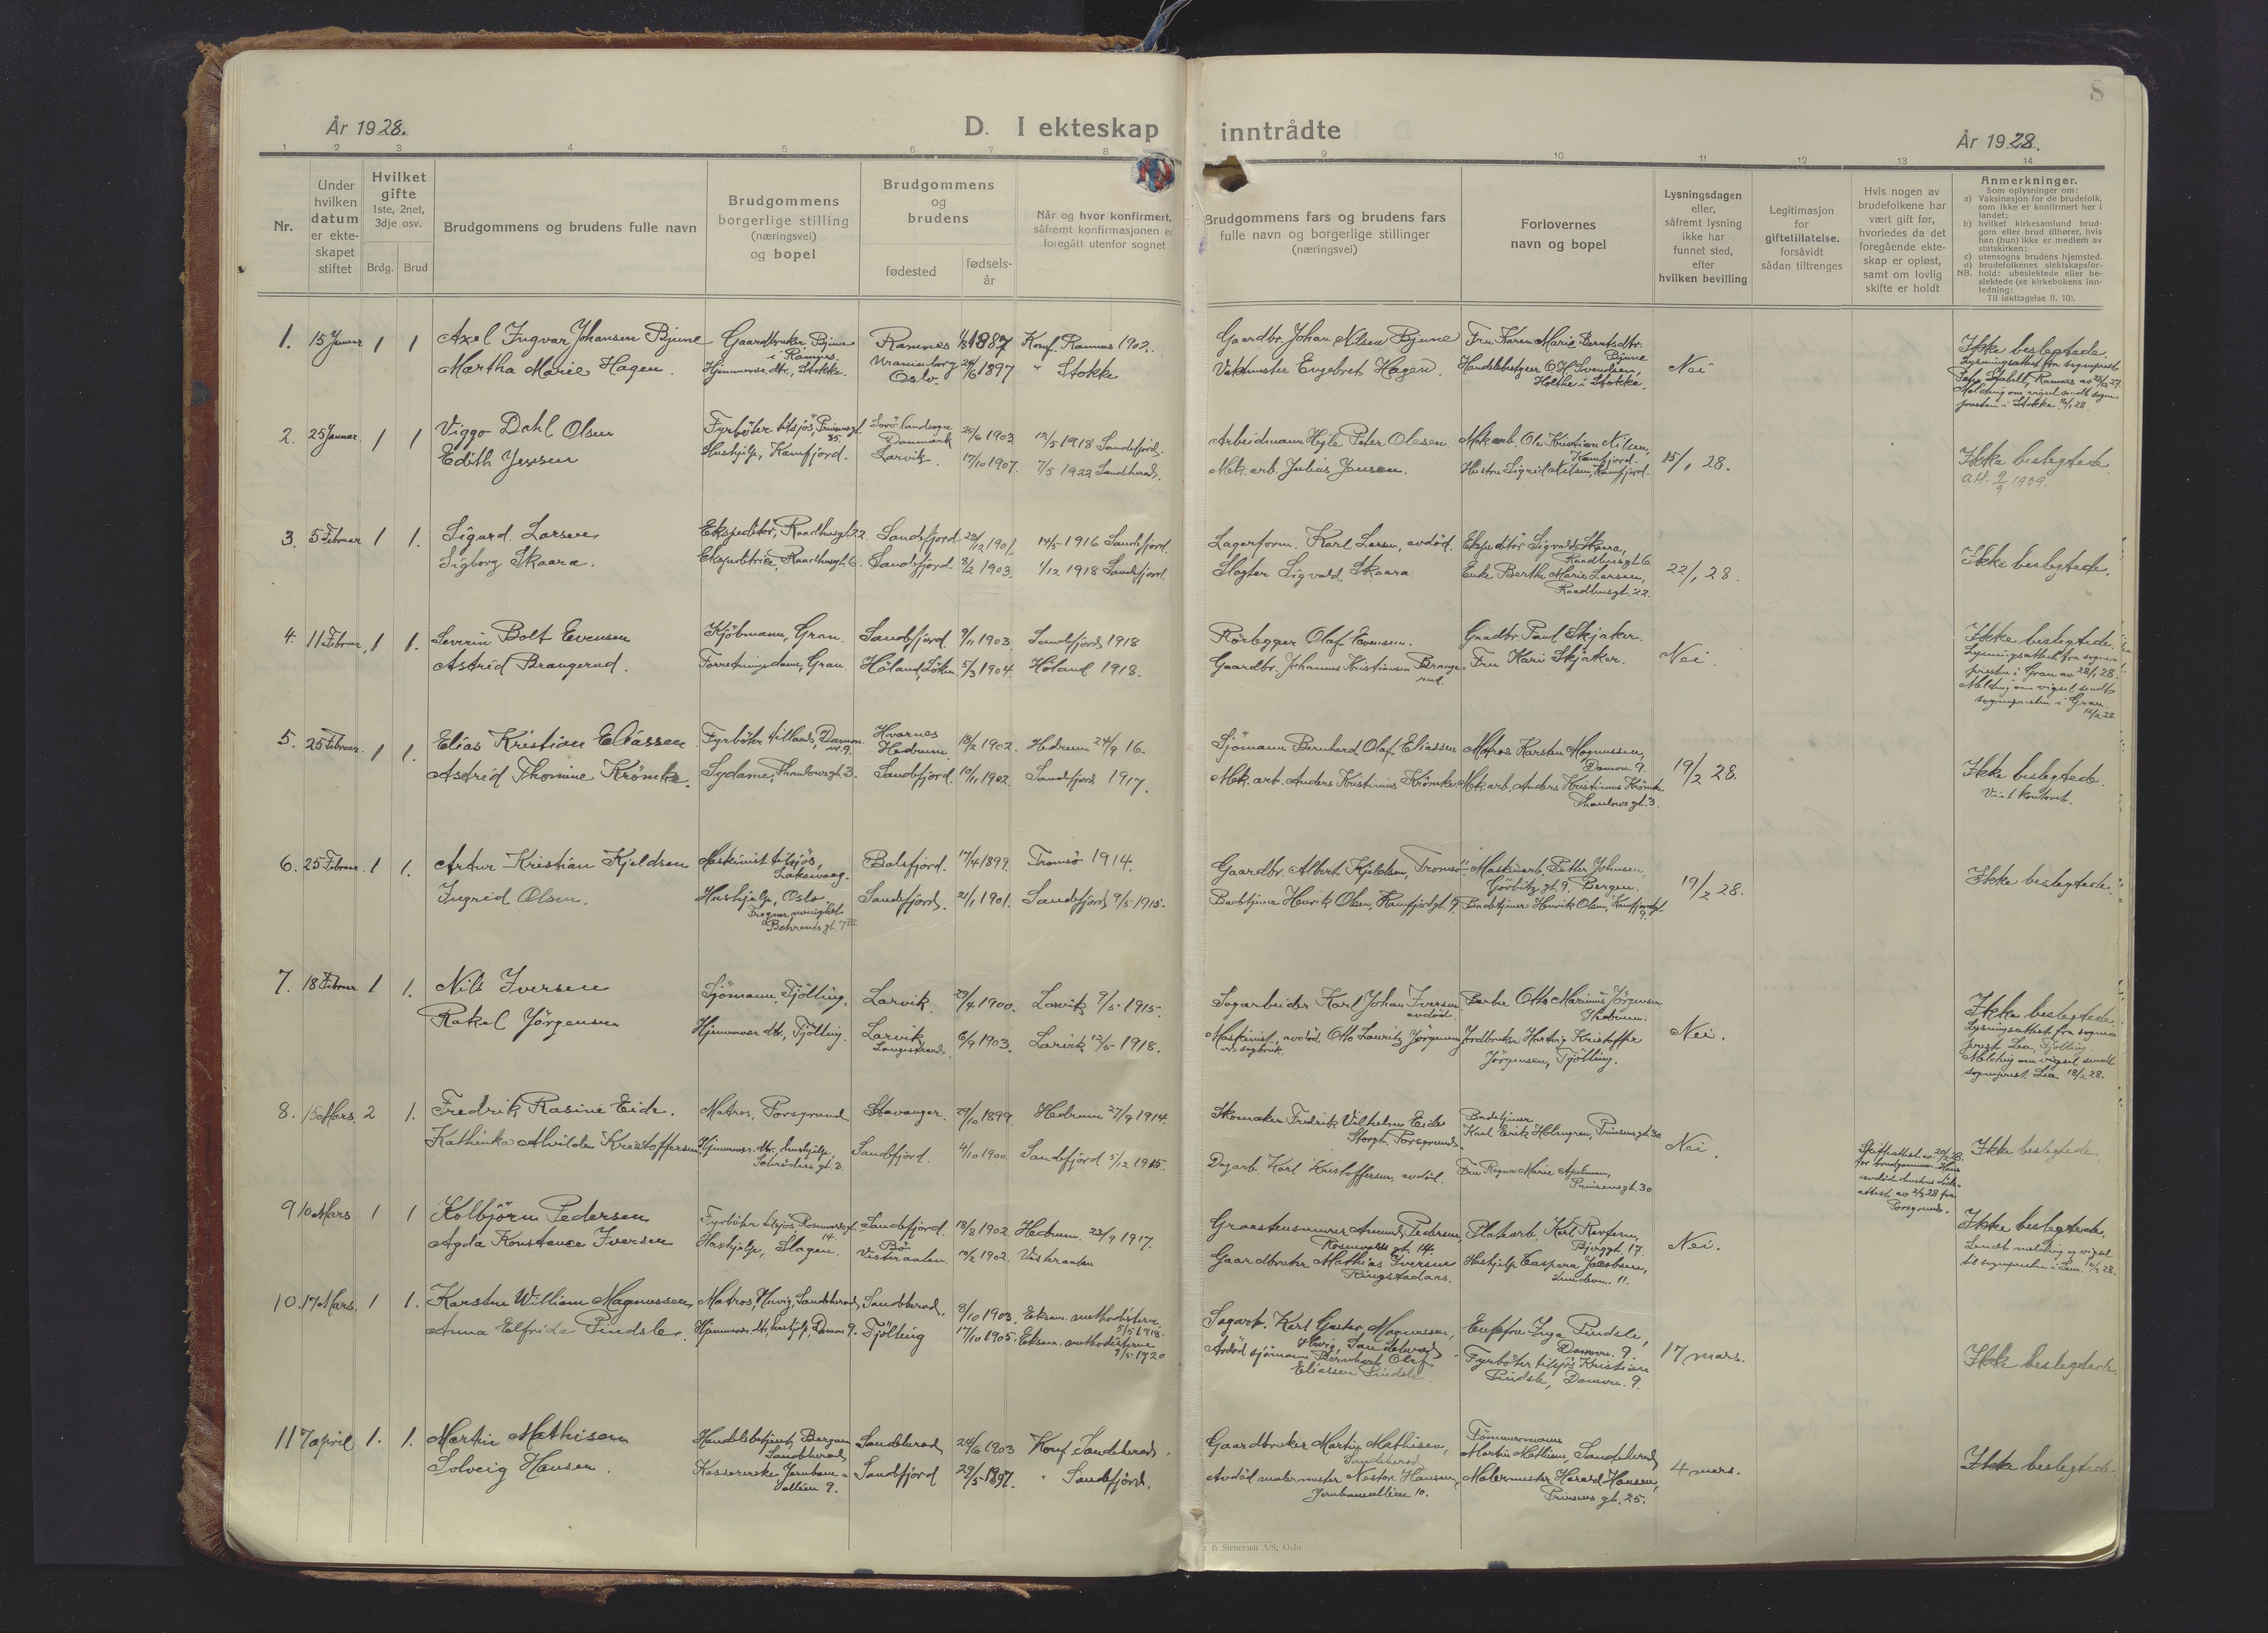 8
År 1928.
D. I ekteskap inntrådte
År 1928.
1 2 3 4 5 6 7 8 9 10 11 12 13 14
Nr.
Under
hvilken
datum
er ekte-
skapet
stiftet
Hvilket
gifte
1ste, 2net,
3dje osv.
Brdg. Brud
Brudgommens og brudens fulle navn
Brudgommens
borgerlige stilling
(næringsvei)
og bopel
Brudgommens
og
brudens
fødested
fødsels-
år
Når og hvor konfirmert,
såfremt konfirmasjonen er
foregått utenfor sognet
Brudgommens fars og brudens fars
fulle navn og borgerlige stillinger
(næringsvei)
Forlovernes
navn og bopel
Lysningsdagen
eller,
såfremt lysning
ikke har
funnet sted,
efter
hvilken bevilling
Legitimasjon
for
giftetillatelse,
forsåvidt
sådan tiltrenges
Hvis nogen av
brudefolkene har
vært gift før,
hvorledes da det
foregående ekte-
skap er opløst,
samt om lovlig
skifte er holdt
Anmerkninger.
Som oplysninger om:
a) Vaksinasjon for de brudefolk,
som ikke er konfirmert her i
landet;
b) hvilket kirkesamfund brud-
gom eller brud tilhører, hvis
han (hun) ikke er medlem av
statskirken;
c) utensogns brudens hjemsted.
d) brudefolkenes slektskapsfor-
NB. hold: ubeslektede eller be-
slektede (se kirkebokens inn-
ledning:
Til iakttagelse II. 10).
1. 15 Januar 1 1 Axel Ingvar Johansen Bjune Gaardbruker Bjune Ramnes 1887 Konf. Ramnes 1902. Gaardbr. Johan Nilsen Bjune Fru Karen Marie Berntsdtr. Ikke beslegtede.
i Ramnes. Bjune Lysningsattest fra sogneprest
Martha Marie Hagen. Hjemmevær. dtr., Stokke. Uranienborg 24/6 1897 " Stokke Vaktmester Engebret Hagen. Handelsbestyrer O. H. Svendsen, Nei
Oslo. Holthe i Stokke. Ramnes av
Melding om vigsel sendt sogne-
presten i Stokke 16/1 28.
2. 25 Januar. 1 1 Viggo Dahl Olsen Fyrbøter tilsjös, Prinsensgt. Sorö landsogn 25/6 1903 12/5 1918 Sandefjord. Arbeidmann Helge Peter Olesen. Mek. arb. Ole Kristian Nilsen, 15/1 28. Ikke beslegtede
35. Danmark Kamfjord.
Edith Jensen Hushjelp, Kamfjord. Larvik. 17/10 1907. 7/5 1922 Sandeherad. Mek. arb. Julius Jansen. Hustru Sigrid Nilsen, Kamfjord. 1939.
3. 5 Februar 1 1. Sigurd Larsen Ekspeditör, Raadhusgt. 22. Sandefjord. 23/12 1901. 14/5 1916 Sandefjord. Lagerform. Karl Larsen, avdöd. Ekspeditör Sigvald Skaara, 22/1 28. Ikke beslegtede.
Raadhusgt. 6
Sigborg Skaara. Ekspeditrice, Raadhusgt. 6. Sandefjord. 3/2 1903. 1/12 1918 Sandefjord. Slagter Sigvald Skaara Enke Berthe Marie Larsen,
Raadhusgt. 22.
4. 11 Februar. 1 1. Severin Bolt Evensen Kjöbmann, Gran. Sandefjord 9/11 1903. Sandefjord 1918 Rörlegger Olaf Evensen. Gradbr. Paul Skjaker. Nei. Ikke beslegtede.
Astrid Brangerud. Forretningsdame, Gran. Höland, Löken 5/3 1904. Höland 1918. Gaardbr. Johannes Kristiansen Brange- Fru Kari Skjaker. Lysningsattest fra sogne-
rud. presten i Gran av 28/1 28.
Melding om vigsel sendt
sognepresten i Gran
12/2 28
5. 25 Februar. 1 1. Elias Kristian Eliassen Fyrbøter tillands, Damvn. Hvarnes 13/2 1902. Hedrum 24/9 16. Sjömann Bernhard Olaf Eliassen Matros Karsten Magnussen, 19/2 28. Ikke beslegtede.
nr. 9. Hedrum Damvn. 9.
Astrid Thomine Krömke. Sydame, Thaulowsgt. 3. Sandefjord. 10/11 1902. Sandefjord 1917. Mek. arb. Anders Kristinius Krömke. Mek. arb. Anders Kristinius Krömke Viet kontoret.
Thaulows gt. 3.
6. 25 Februar. 1 1. Artur Kristian Kjeldsen Maskinist tilsjös, Balsfjord. 17/4 1899. Tromsö 1914. Gaardbr. Albert Kjeldsen, Tromsö. Maskinarb. Petter Johnsen, 19/2 28. Ikke beslegtede.
Laksevaag. Görbitz gt. 9, Bergen.
Ingrid Olsen. Hushjelp, Oslo. Sandefjord. 21/1 1901. Sandefjord 9/5 1915. Badetjener Henrik Olsen, Kamfjordgt. 9. Badetjener Henrik Olsen, Kamfjordgt.
Frogner menighet 9.
Behrensgt. 7 III.
7. 18 Februar 1 1. Nils Iversen Sjömann, Tjölling. Larvik 29/4 1900. Larvik 9/5 1915. Sagarbeider Karl Johan Iversen Barber Otto Marinius Jörgensen Nei. Ikke beslegtede
avdöd. Hedrum. Lysningsattest fra sogne-
Rakel Jörgensen Hjemmevær. dtr., Tjölling. Larvik 6/9 1903. Larvik 12/5 1918. Maskinist, avdöd, Otto Lauritz Jörgensen Jordbruker Hartvig Kristoffer prest Lea, Tjölling.
Langestrand. ved sagbruk. Jörgensen, Tjölling. Melding om vigsel sendt
sogneprest Lea 18/2 28.
8. 15 Mars. 2 1. Fredrik Rasine Eide. Matros, Porsgrund Stavanger. 29/10 1899. Hedrum 27/9 1914. Skomaker Fredrik Vilhelm Eide Badetjener Nei. Ikke beslegtede
Storgt. Porsgrund. Karl Erik Holmgren, Prinsensgt. 30
Kathinka Alvilde Kristoffersen Hjemmevær. dtr. hushjelp, Sandefjord. 4/10 1900 Sandefjord 5/12 1915. Dagarb. Karl Kristoffersen, avdöd. Fru Ragna Marie Apelman, Skifteattest av 20/2 28.
Schröders gt. 3. Prinsensgt. 30 for brudgommen. Hans
avdöde hustrus döds-
attest av 2/3 28 fra
Porsgrund.
9 10 Mars 1 1 Kolbjörn Pedersen Fyrbøter tilsjös, Rosenvoldsgt. Sandefjord. 18/8 1902 Hedrum 23/9 1917. Graastensmurer Amund Pedersen, Platearb. Karl Revheim, Nei. Ikke beslegtede.
14. Rosenvolds gt. 14. Bjerggt. 17.
Agda Konstance Iversen Hushjelp, Slagen. Bö 1902. Vesteraalen Gaardbruker Mathias Iversen Hushjelp Caspara Jacobsen, Sendt melding og vigsel
Vesteraalen. Ringstadaas. Lundevn. 11. til sognepresten i Sem 28.
10. 17 Mars. 1 1. Karsten William Magnussen Matros, Hvvig, Sandeherad Sandeherad. 8/10 1903. Eksam. methodistkirke. Sagarb. Karl Gustav Magnussen, Enkefru Inga Pindsle, 17 mars. Ikke beslegtede.
5/5 1918. Sandeherad Damvn. 9.
Anna Elfrida Pindsle. Hjemmevær. dtr., hushjelp, Damvn 9. Tjölling 17/10 1905. Eksam. methodistkirke Avdöd sjömann Bernhart Olaf Fyrbøter tilsjös Kristian
9/5 1920 Eliassen Pindsle. Pindsle, Damvn. 9.
11 7 april 1. 1. Martin Mathisen Handelsbetjent, Bergan Sandeherad 24/6 1903 Konf. Sandeherad. Gaardbruker Martin Mathisen, Tömmermann 4 mars. Ikke beslegtede.
Sandeherad Sandeherad Martin Mathisen, Sandeherad
Solveig Hansen. Kassererske Jernbane- Sandefjord 29/5 1897. " Sandefjord. Avdöd malermester Nestor Hansen, Malermester Harard Hansen,
alleen 9. Jernbanealleen 10. Prinsens gt. 25.
& Stenersen A/S, Oslo